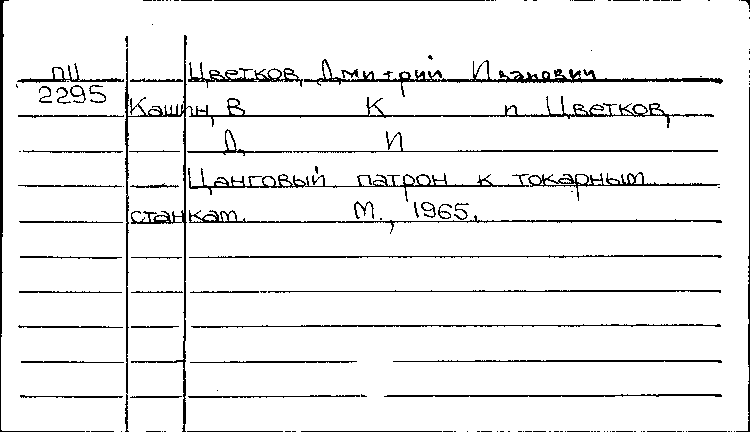 пи Цветков, Дмитрий Иванович
2295 Кашин, В К и Цветков,
Д И
Цанговый патрон к токарным
станкам. М., 1965.